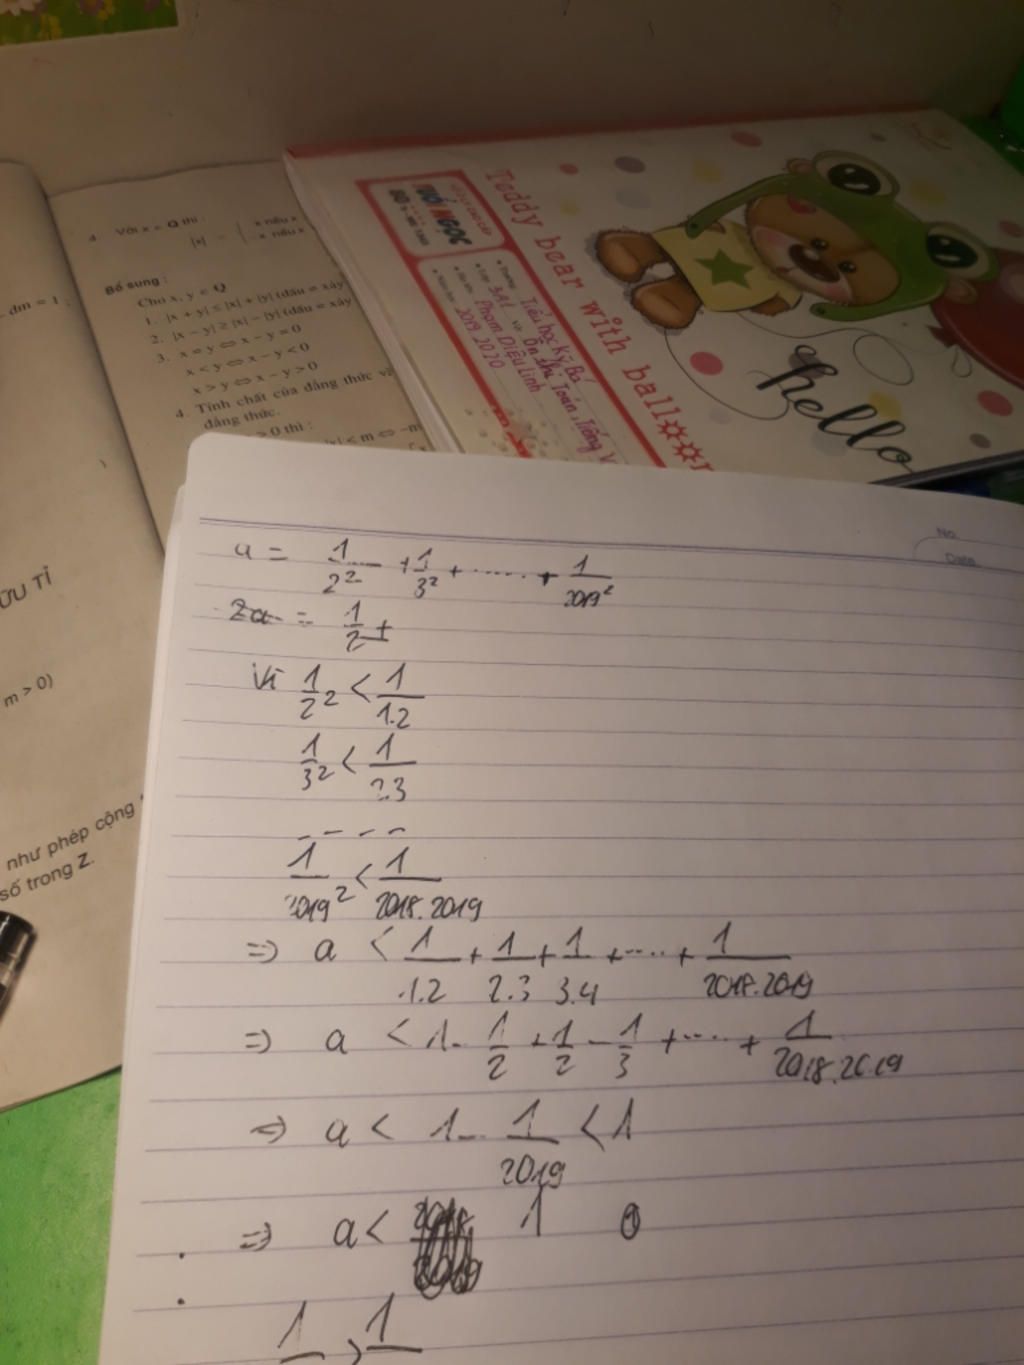 4. Với x ∈ Q thì :
|x| = { x nếu x
- x nếu x
Bổ sung :
Cho x, y ∈ Q
1. |x + y| ≤ |x| + |y| (dấu = xảy
2. |x – y| ≥ |x| – |y| (dấu = xảy
3. x = y ⇔ x – y = 0
x < y ⇔ x – y < 0
x > y ⇔ x – y > 0
4. Tính chất của đẳng thức
đẳng thức.
> 0 thì :
|x| < m ⇔ –m
dm = 1 ;
ỮU TỈ
m > 0)
như phép cộng
số trong Z.
TUỔI NGỌC
Teddy bear with balloon
hello
Trường Tiểu học Kỳ Bá
Lớp 3A1 vở Ôn thi Toán, Tiếng V
Phạm Diệu Linh
2019 2020
No.
Date
a = 1/2² + 1/3² + ...... + 1/2019²
2a = 1/2 +
Vì 1/2² < 1/1.2
1/3² < 1/2.3
- - - -
1/2019² < 1/2018.2019
=> a < 1/1.2 + 1/2.3 + 1/3.4 + .... + 1/2018.2019
=> a < 1 - 1/2 + 1/2 - 1/3 + .... + 1/2018.2019
=> a < 1 - 1/2019 < 1
=> a < 1